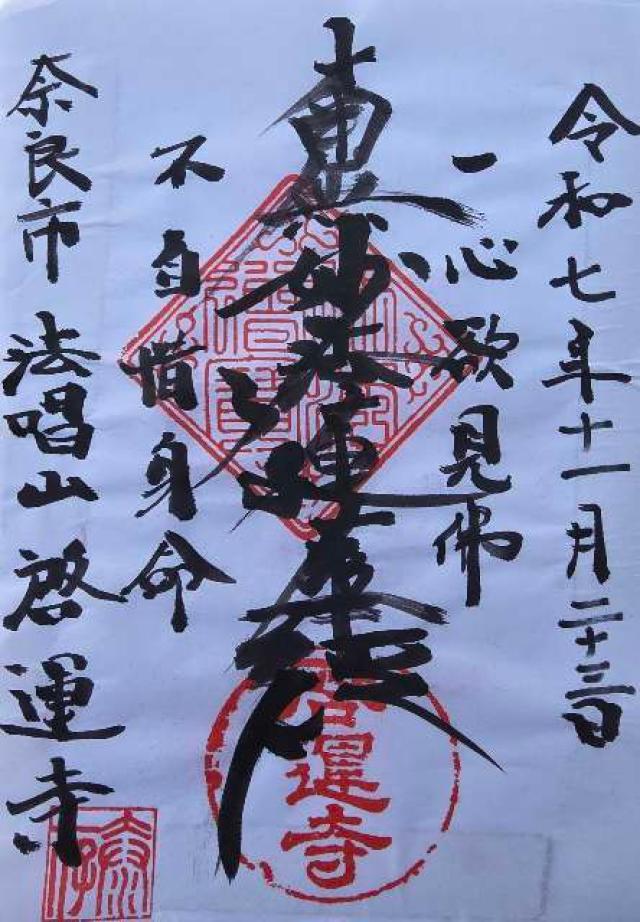 令和七年十一月二十三日
一心欲見佛
南無妙法蓮華経
不自惜身命
奈良市 法唱山 啓運寺
啓運寺